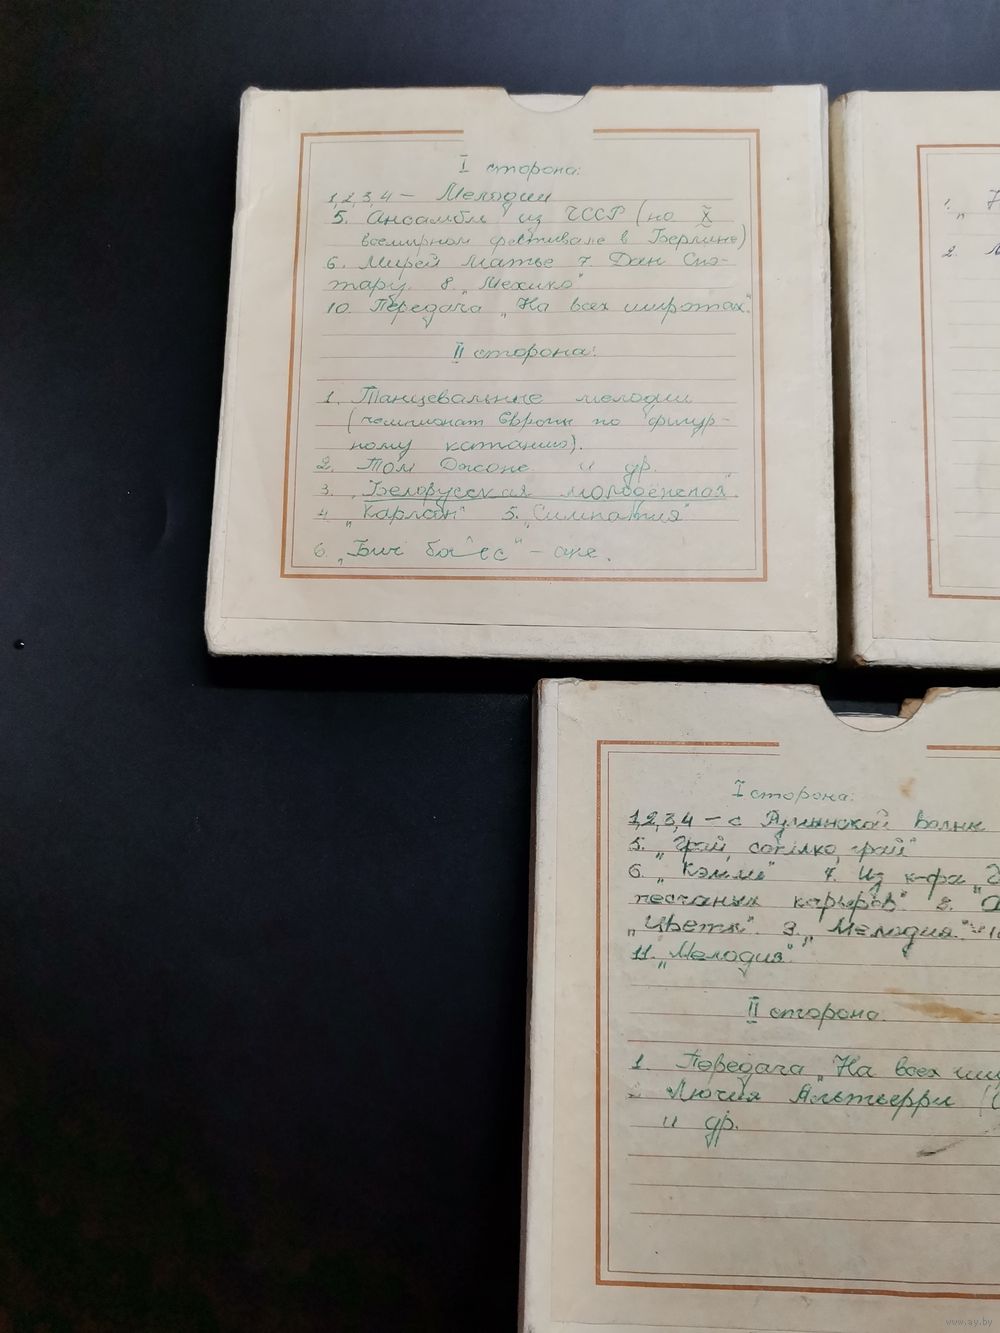 I сторона:
1,2,3,4 – Мелодии
5. Ансамбли из ЧССР (на X
всемирном фестивале в Берлине)
6. Мирей Матье 7. Дан Спэ-
тару. 8. „Мехико"
10. Передача „На всех широтах".
II сторона:
1. Танцевальные мелодии
(чемпионат Европы по фигур-
ному катанию).
2. Том Джонс и др.
3. „Белорусская молодёжная".
4. 5. „Симпатия"
6.
1. „
2.
I сторона:
1,2,3,4 – с Румынской волны
5. „Грай, сопiлко, грай"
6. 7. Из к-фа „
песчаных карьеров" 8.
„Цветы". 9. „Мелодия"
11. „Мелодия".
II сторона.
1. Передача „На всех
Лючия Альтьерри (
и др.
www.ay.by